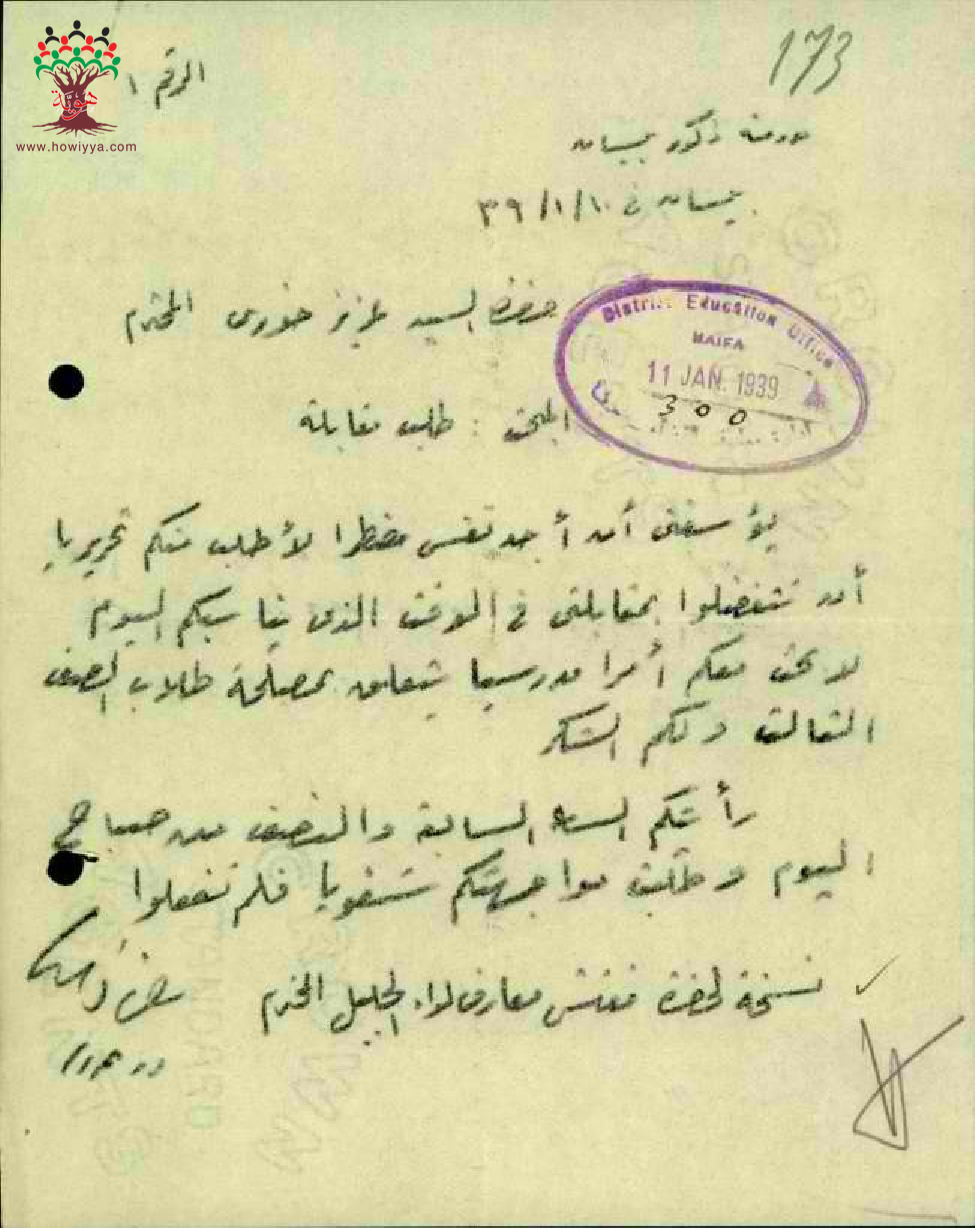 173
الرقم ١
هوية
www.howiyya.com
مدرسة ذكور بيسان
بيسان في ١٠/١/٣٩
حضرة السيد عزيز خوري المحترم
District Education Office
HAIFA
11 JAN. 1939
300
المبحث : طلب مقابلة
يؤسفني أن أجد نفسي مضطرا لأطلب منكم تحريريا
أن تتفضلوا بمقابلتي في الوقت الذي يناسبكم اليوم
لابحث معكم أمرا مدرسيا يتعلق بمصلحة طلاب الصف
الثالث ولكم الشكر
رأيتكم الساعة السابعة والنصف من صباح
اليوم وطلبت مواجهتكم شفويا فلم تفعلوا
نسخة لحضرة مفتش معارف لواء الجليل المحترم